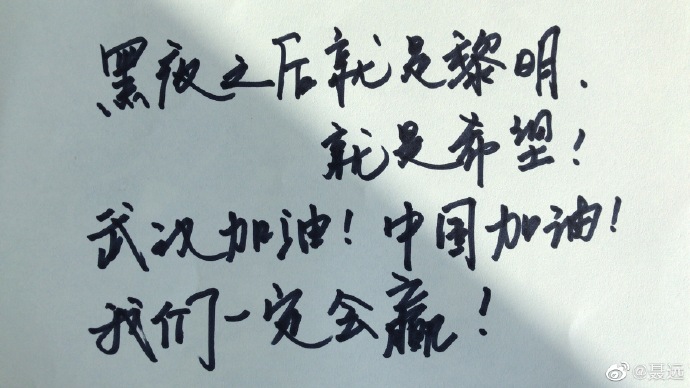 黑夜之后就是黎明.
就是希望!
武汉加油!中国加油!
我们一定会赢!
@聂远